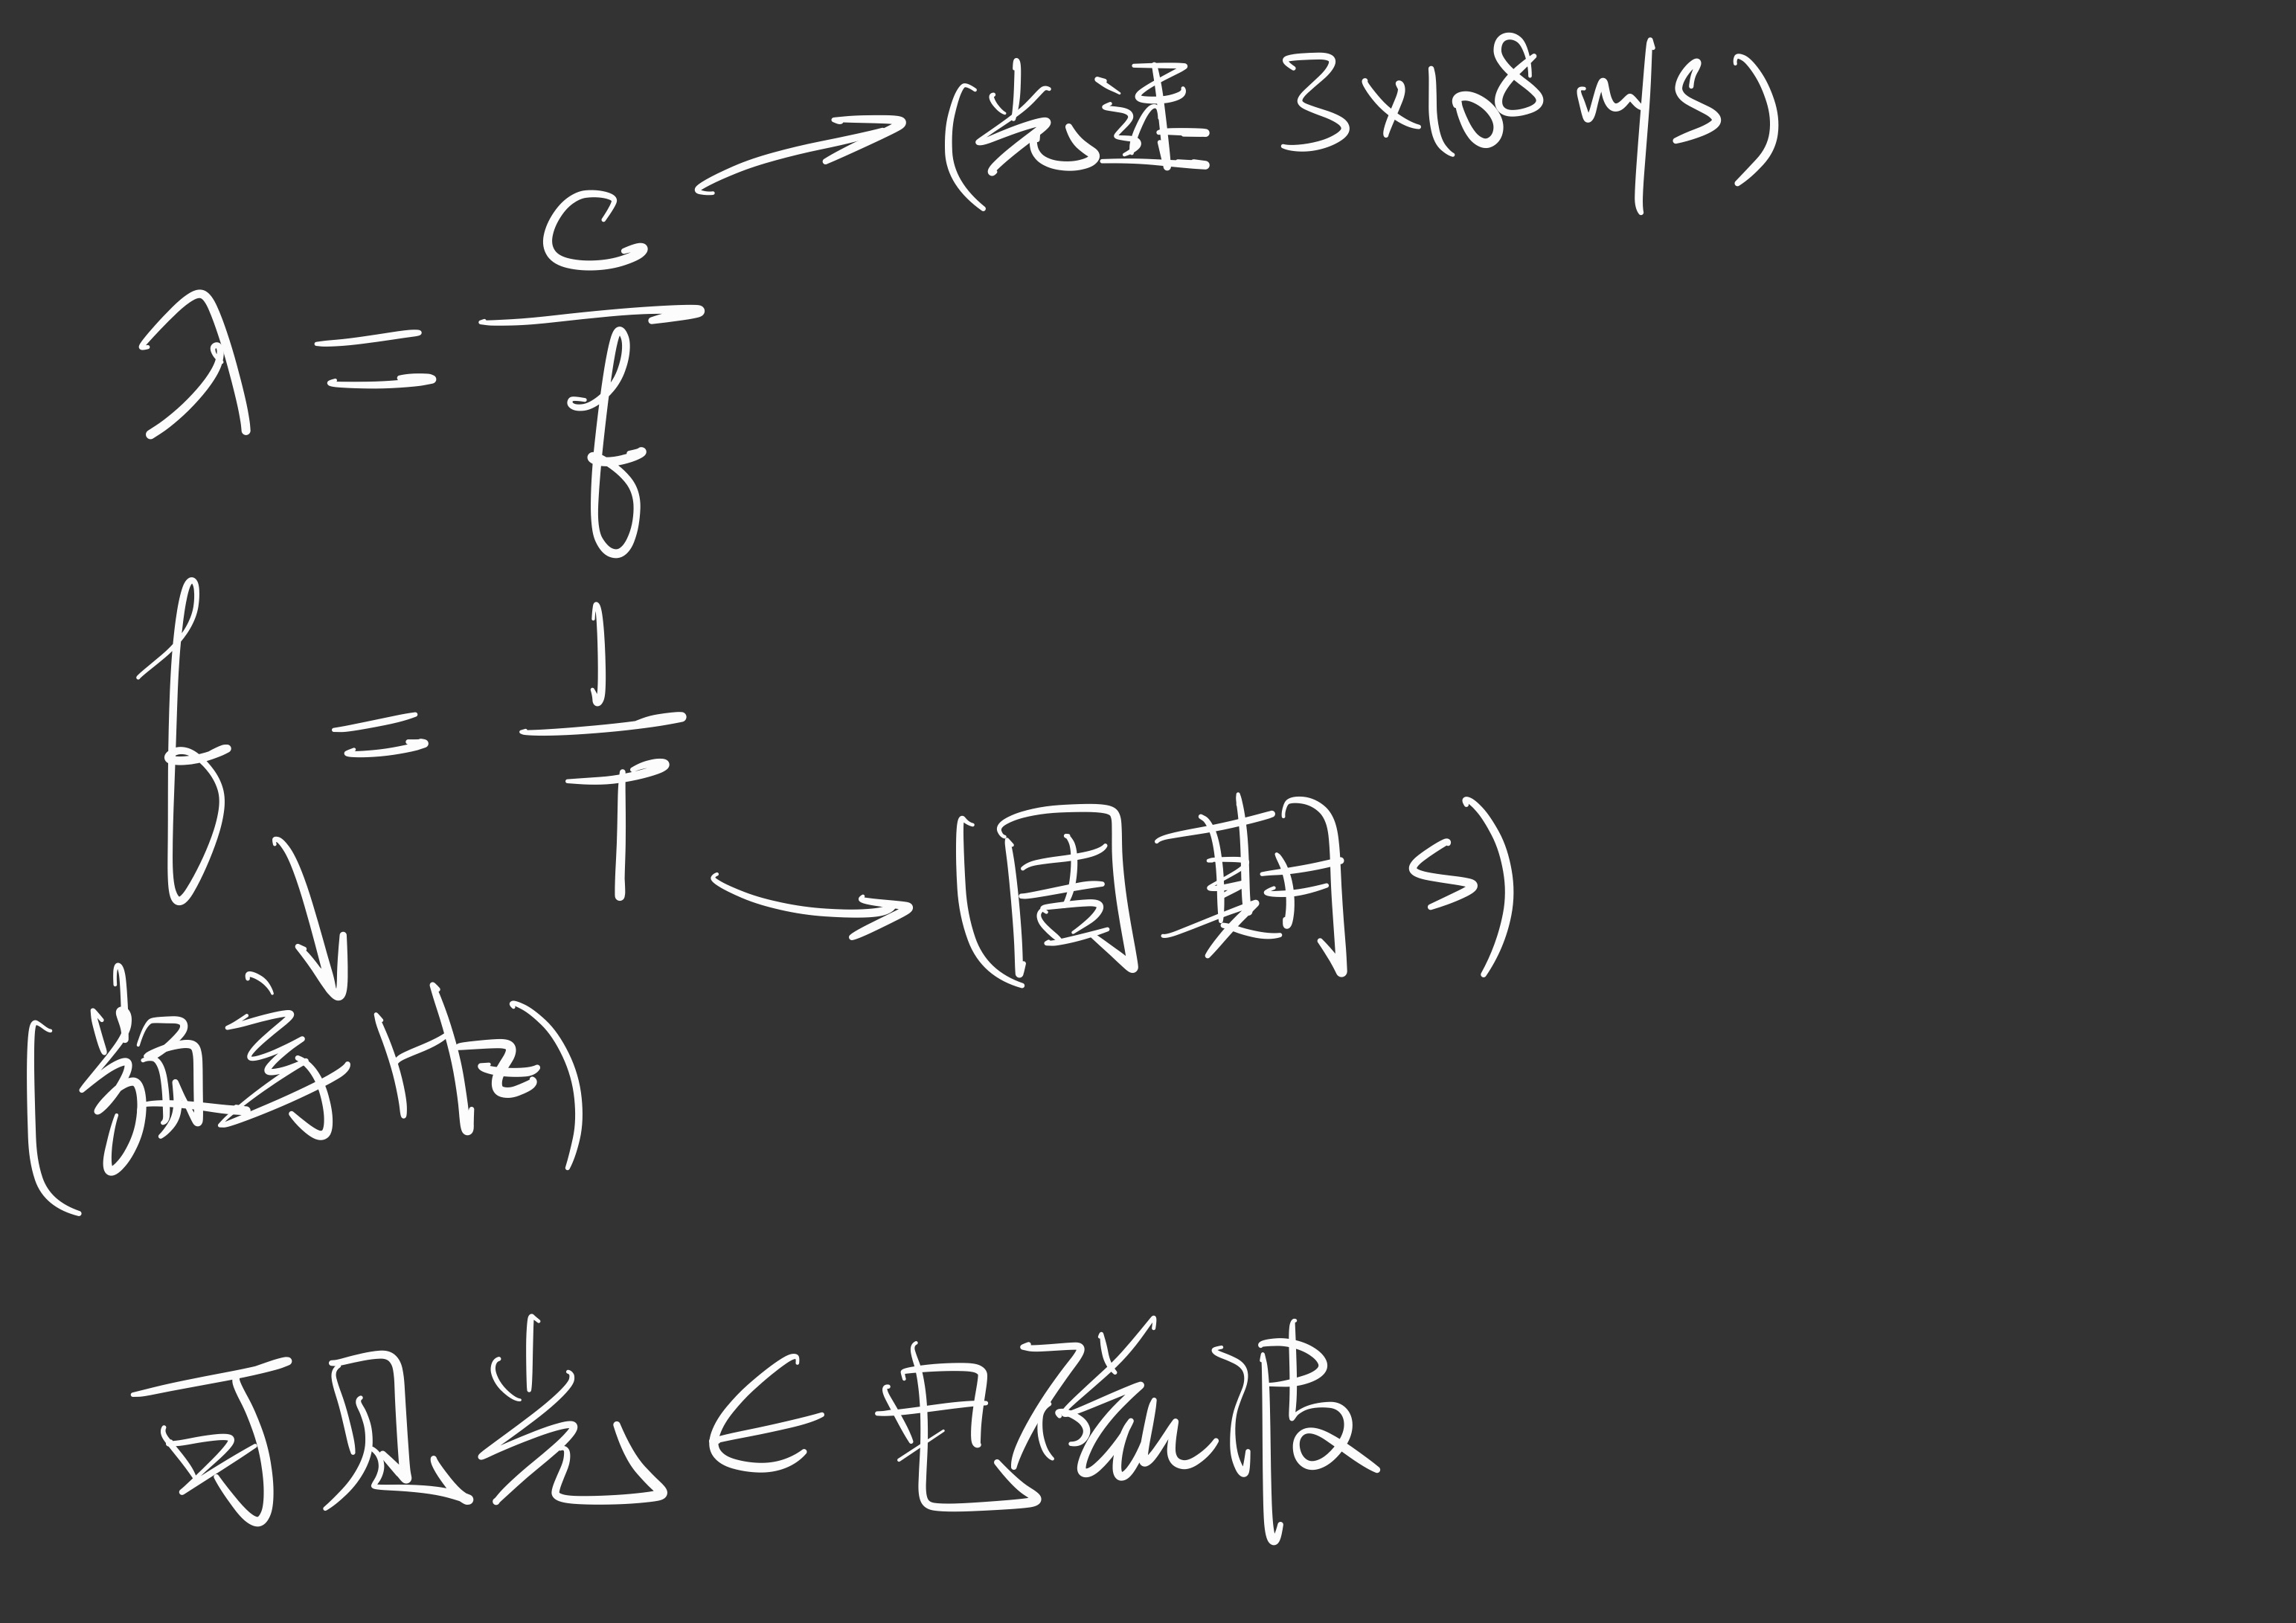 λ = c/f → (光速 3×10⁸ m/s)
f = 1/T → (周期 s)
(频率Hz)
可见光 ∈ 电磁波